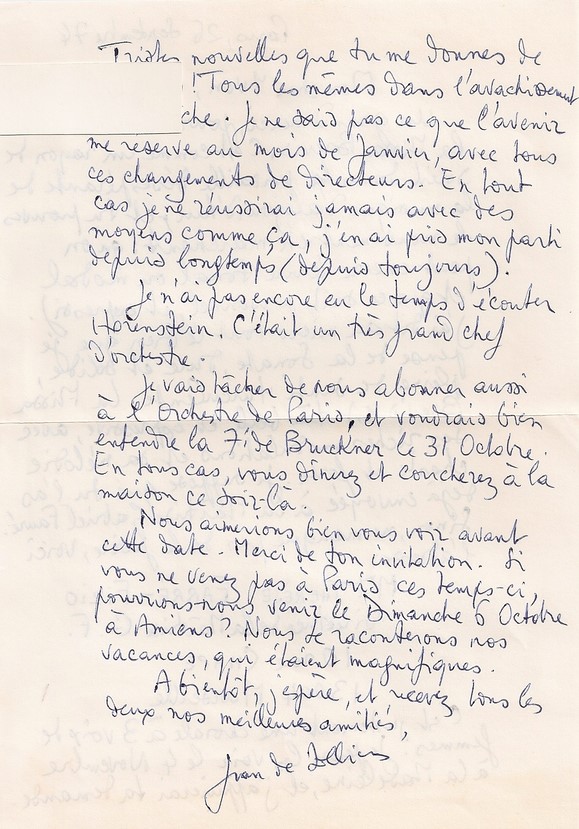 Tristes nouvelles que tu me donnes de
! Tous les mêmes dans l'avachissement
che. Je ne sais pas ce que l'avenir
me reserve au mois de Janvier, avec tous
ces changements de directeurs. En tout
cas je ne réussirai jamais avec des
moyens comme ça, j'en ai pris mon parti
depuis longtemps (depuis toujours).
Je n'ai pas encore eu le temps d'écouter
Horenstein. C'était un très grand chef
d'orchestre.
Je vais tâcher de nous abonner aussi
à l'Orchestre de Paris, et voudrais bien
entendre la 7e de Bruckner le 31 Octobre.
En tous cas, vous dînerez et coucherez à la
maison ce soir-là.
Nous aimerions bien vous voir avant
cette date. Merci de ton invitation. Si
vous ne venez pas à Paris ces temps-ci,
pourrions-nous venir le Dimanche 6 Octobre
à Amiens? Nous te raconterons nos
vacances, qui étaient magnifiques.
A bientôt, j'espère, et recevez tous les
deux nos meilleures amitiés,
Jean de